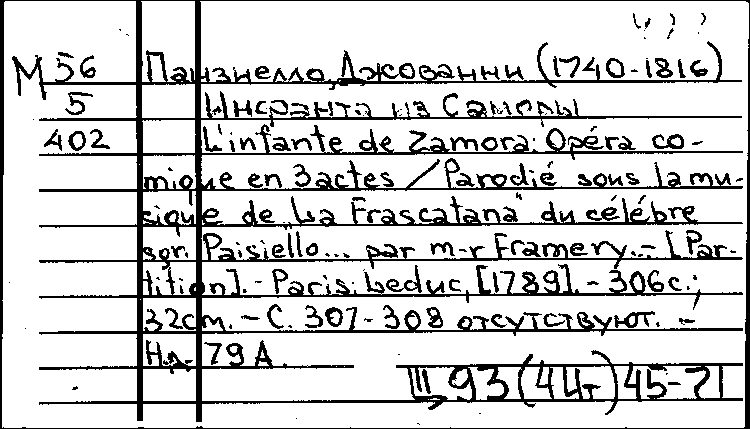 М 56 Паизиелло, Джованни (1740-1816)
5 Инфанта из Саморы
402 L'infante de Zamora: Opéra co-
mique en 3 actes / Parodié sous la mu-
sique de „La Frascatana" du célébre
sgr. Paisiello... par m-r Framery. - [Par-
tition]. - Paris: Leduc, [1789]. - 306с.;
32см. - С. 307-308 отсутствуют. -
Н.д. 79 А.
Ш 93(4Ит)45-71